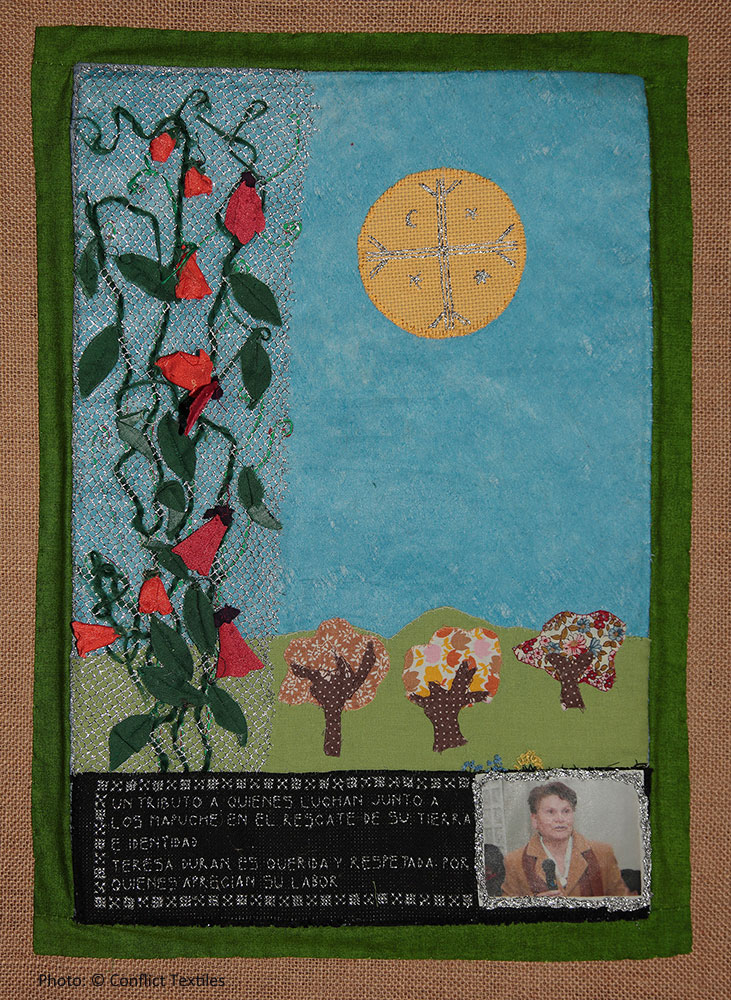 UN TRIBUTO A QUIENES LUCHAN JUNTO A
LOS MAPUCHE: EN EL RESCATE DE SU TIERRA
E IDENTIDAD
TERESA DURAN ES QUERIDA Y RESPETADA POR
QUIENES APRECIAN SU LABOR
Photo: © Conflict Textiles